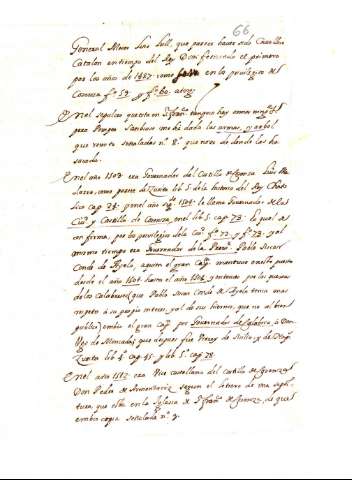 66
General Mossen Luis Lull, que parece haver sido Cavallero
Catalan en tiempo del Rey Don fernando el primero
por los años de 1487. como en los privilegios de
Cosenza fº 59. y fº 60.
En el sepulcro questa en S. franc. tampoco hay armas
pero Prospero me ha dado las armas, y arbol
que remito señalados nº 8. que no se de donde los ha
sacado.
En el año 1503. era Governador del Castillo de Cosenza Luis
como parece de Zurita lib. 5 de la historia del Rey Catho-
lico cap. 34. y en el año 1504. le llama Governador de la
Ciud y Castillo de Cosenza, en el lib. 5. cap. 73. lo qual se
confirma, por los privilegios de la Ciud fº 72. y fº 73. y al
mismo tiempo era Governador de la Prov. Pablo Siscar
Conde de Ayelo, a quien el gran Capn mantuvo en este puesto
desde el año 1504. hasta el año 1506. y entonces por las quexas
de los Calabreses que Pablo Siscar Conde de Ayelo tenia mas
respeto à su propio interes, y al de sus hierros, que no al bien
publico, embio el gran Capn por Governador de Calabria, à Don
Ugo de Moncada, que despues fue Virrey de Sicilia, y de Nap.
Zurita lib. 6. cap. 45. y lib. 5. cap. 78.
En el año 1512. era Vice castellano del Castillo de Cosenza
Don Pedro de segun el letrero de una sepul-
tura, que està en la Iglesia de S. franc. de Cosenza, de que
embio copia señalada nº 9.